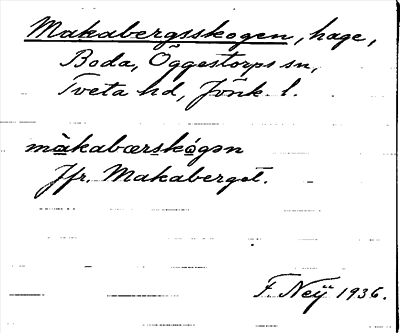 Makabergsskogen, hage,
Boda, Öggestorps sn,
Tveta hd, Jönk. l.
màkabærskógən
Jfr. Makaberget.
F. Neÿ 1936.